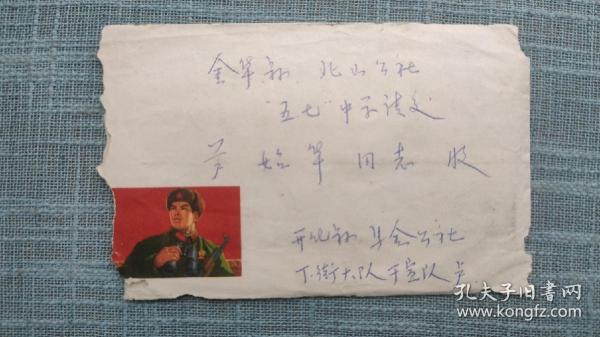 金华县 北山公社
"五七"中学请交
芦始华同志 收
开化县 华金公社
下街大队干宣队芦
孔夫子旧书网
www.kongfz.com